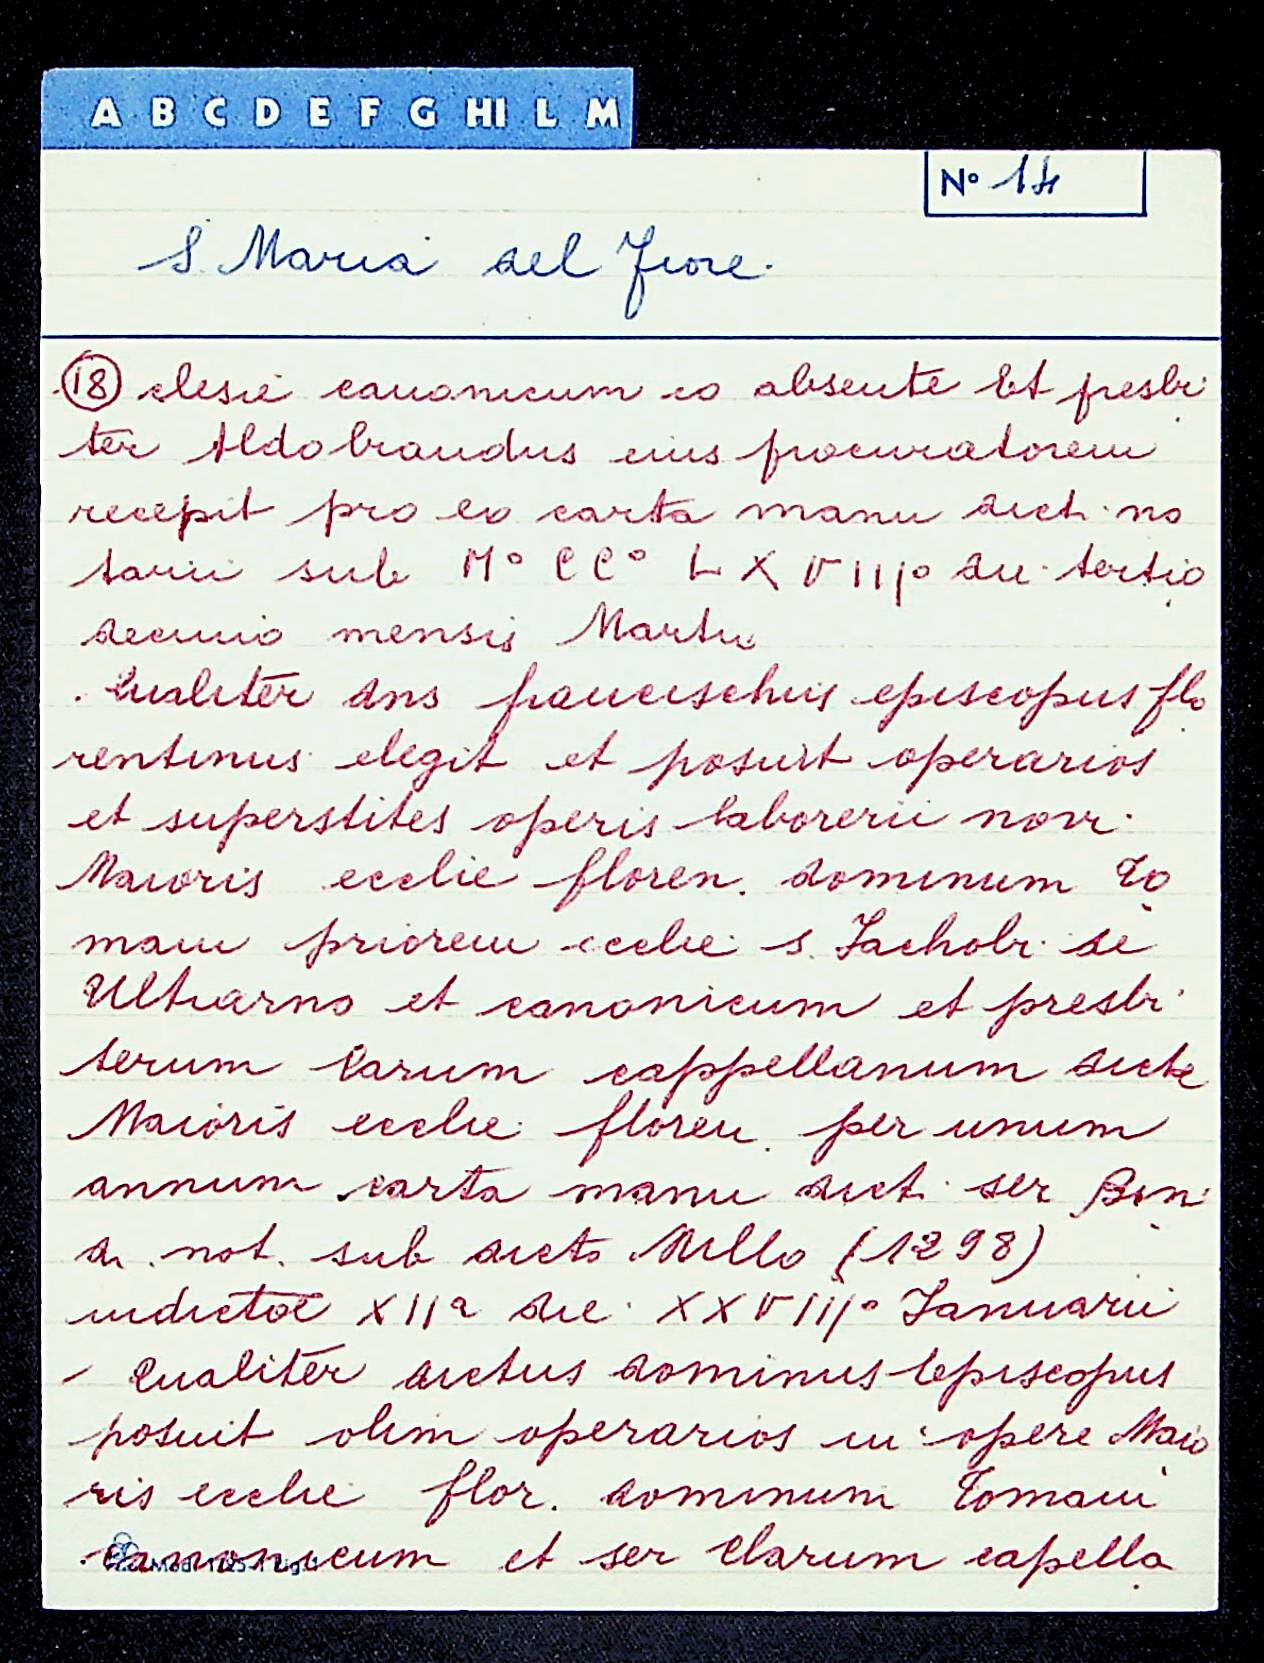 A B C D E F G HI L M
Nº 14
S. Maria del Fiore.
(18) clesie canonicum eo absente Et presbi
ter Aldobrandus eius procuratorem
recepit pro eo carta manu dicti no
tarii sub Mº CCº LXVIIIº die tertio
decimo mensis Martii
. Qualiter dns francischus episcopus flo
rentinus elegit et posuit operarios
et superstites operis laborerii novi.
Maioris ecclie floren. dominum To
mam priorem ecclie s. Jachobi de
Ultrarno et canonicum et presbi
terum Carum cappellanum dicte
Maioris ecclie floren. per unum
annum carta manu dicti ser Ben
di. not. sub dicto Millo (1298)
indictoe XIIª die XXVIIIº Januarii
- Qualiter dictus dominus Episcopus
posuit olim operarios in opere Maio
ris ecclie flor. dominum Tomam
canonicum et ser Clarum capella